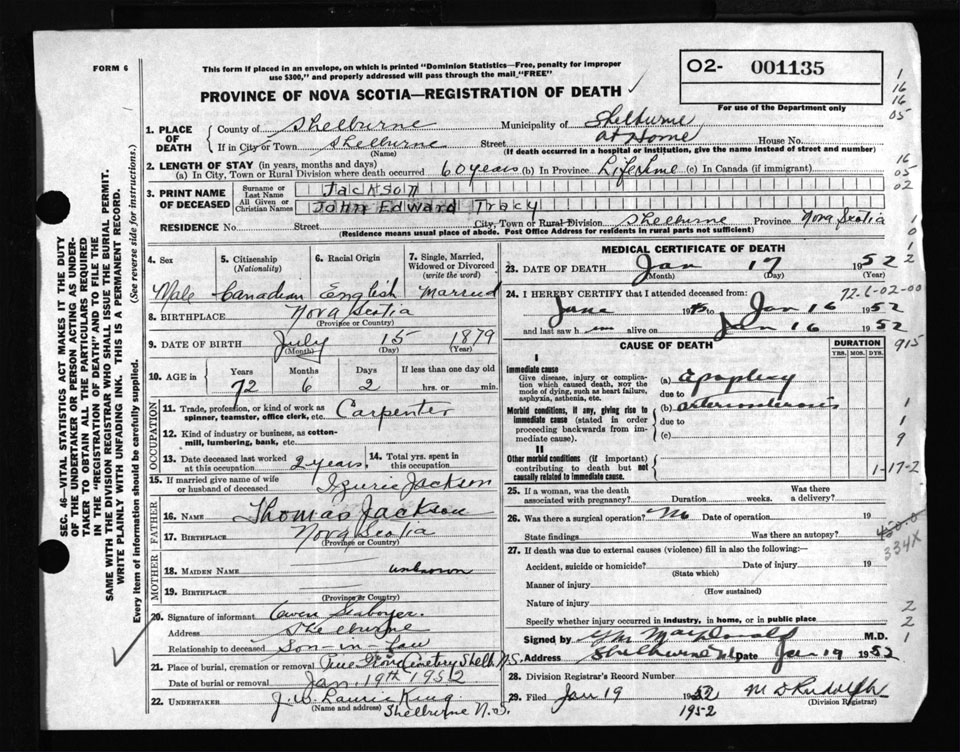 FORM 6
This form if placed in an envelope, on which is printed "Dominion Statistics—Free, penalty for improper
use $300," and properly addressed will pass through the mail "FREE"
PROVINCE OF NOVA SCOTIA—REGISTRATION OF DEATH
O2- 001135
For use of the Department only
1. PLACE OF DEATH
County of Shelburne Municipality of Shelburne
If in City or Town Shelburne Street at Home House No.
(Name) (If death occurred in a hospital or institution, give the name instead of street and number)
2. LENGTH OF STAY (in years, months and days)
(a) In City, Town or Rural Division where death occurred 60 years (b) In Province Lifetime (c) In Canada (if immigrant)
3. PRINT NAME OF DECEASED
Surname or Last Name Jackson
All Given or Christian Names John Edward Tracy
RESIDENCE No. Street City, Town or Rural Division Shelburne Province Nova Scotia
(Residence means usual place of abode. Post Office Address for residents in rural parts not sufficient)
4. Sex
5. Citizenship (Nationality)
6. Racial Origin
7. Single, Married, Widowed or Divorced (write the word)
Male Canadian English Married
8. BIRTHPLACE Nova Scotia
(Province or Country)
9. DATE OF BIRTH July 15 1879
(Month) (Day) (Year)
10. AGE in Years Months Days If less than one day old
72 6 2 hrs. or min.
OCCUPATION
11. Trade, profession, or kind of work as spinner, teamster, office clerk, etc. Carpenter
12. Kind of industry or business, as cotton-mill, lumbering, bank, etc.
13. Date deceased last worked at this occupation 2 years
14. Total yrs. spent in this occupation
15. If married give name of wife or husband of deceased Jackson
FATHER
16. NAME Thomas Jackson
17. BIRTHPLACE Nova Scotia
(Province or Country)
MOTHER
18. MAIDEN NAME unknown
19. BIRTHPLACE
(Province or Country)
20. Signature of informant Owen
Address Shelburne
Relationship to deceased Son-in-Law
21. Place of burial, cremation or removal Cemetery Shelb N.S.
Date of burial or removal Jan. 19th 1952
22. UNDERTAKER J.W. Laurie King
(Name and address) Shelburne N.S.
MEDICAL CERTIFICATE OF DEATH
23. DATE OF DEATH Jan 17 1952
(Month) (Day) (Year)
24. I HEREBY CERTIFY that I attended deceased from:
72-6-02-00
June to Jan 16 1952
and last saw h im alive on Jan 16 1952
915
CAUSE OF DEATH
DURATION
YRS. MOS. DYS.
I
Immediate cause
Give disease, injury or complication which caused death, not the mode of dying, such as heart failure, asphyxia, asthenia, etc.
(a) Apoplexy
due to
Morbid conditions, if any, giving rise to immediate cause (stated in order proceeding backwards from immediate cause).
(b) arteriosclerosis
due to
(c)
II
Other morbid conditions (if important) contributing to death but not causally related to immediate cause.
1-17-2
25. If a woman, was the death associated with pregnancy? Duration weeks. Was there a delivery?
26. Was there a surgical operation? No Date of operation 19
State findings Was there an autopsy?
334X
27. If death was due to external causes (violence) fill in also the following:—
Accident, suicide or homicide? Date of injury 19
(State which)
Manner of injury
(How sustained)
Nature of injury
Specify whether injury occurred in industry, in home, or in public place
Signed by MacDonald M.D.
Address Shelburne Date Jan 19 1952
28. Division Registrar's Record Number
29. Filed Jan 19 1952 M D Rudolph
1952 (Division Registrar)
SEC. 46— VITAL STATISTICS ACT MAKES IT THE DUTY
OF THE UNDERTAKER OR PERSON ACTING AS UNDER-
TAKER TO OBTAIN ALL THE PARTICULARS REQUIRED
IN THE "REGISTRATION OF DEATH" AND TO FILE THE
SAME WITH THE DIVISION REGISTRAR WHO SHALL ISSUE THE BURIAL PERMIT.
WRITE PLAINLY WITH UNFADING INK. THIS IS A PERMANENT RECORD.
Every item of information should be carefully supplied. (See reverse side for instructions.)
1
16
16
05
16
05
02
1
0
2
1
1
9
2
2
1